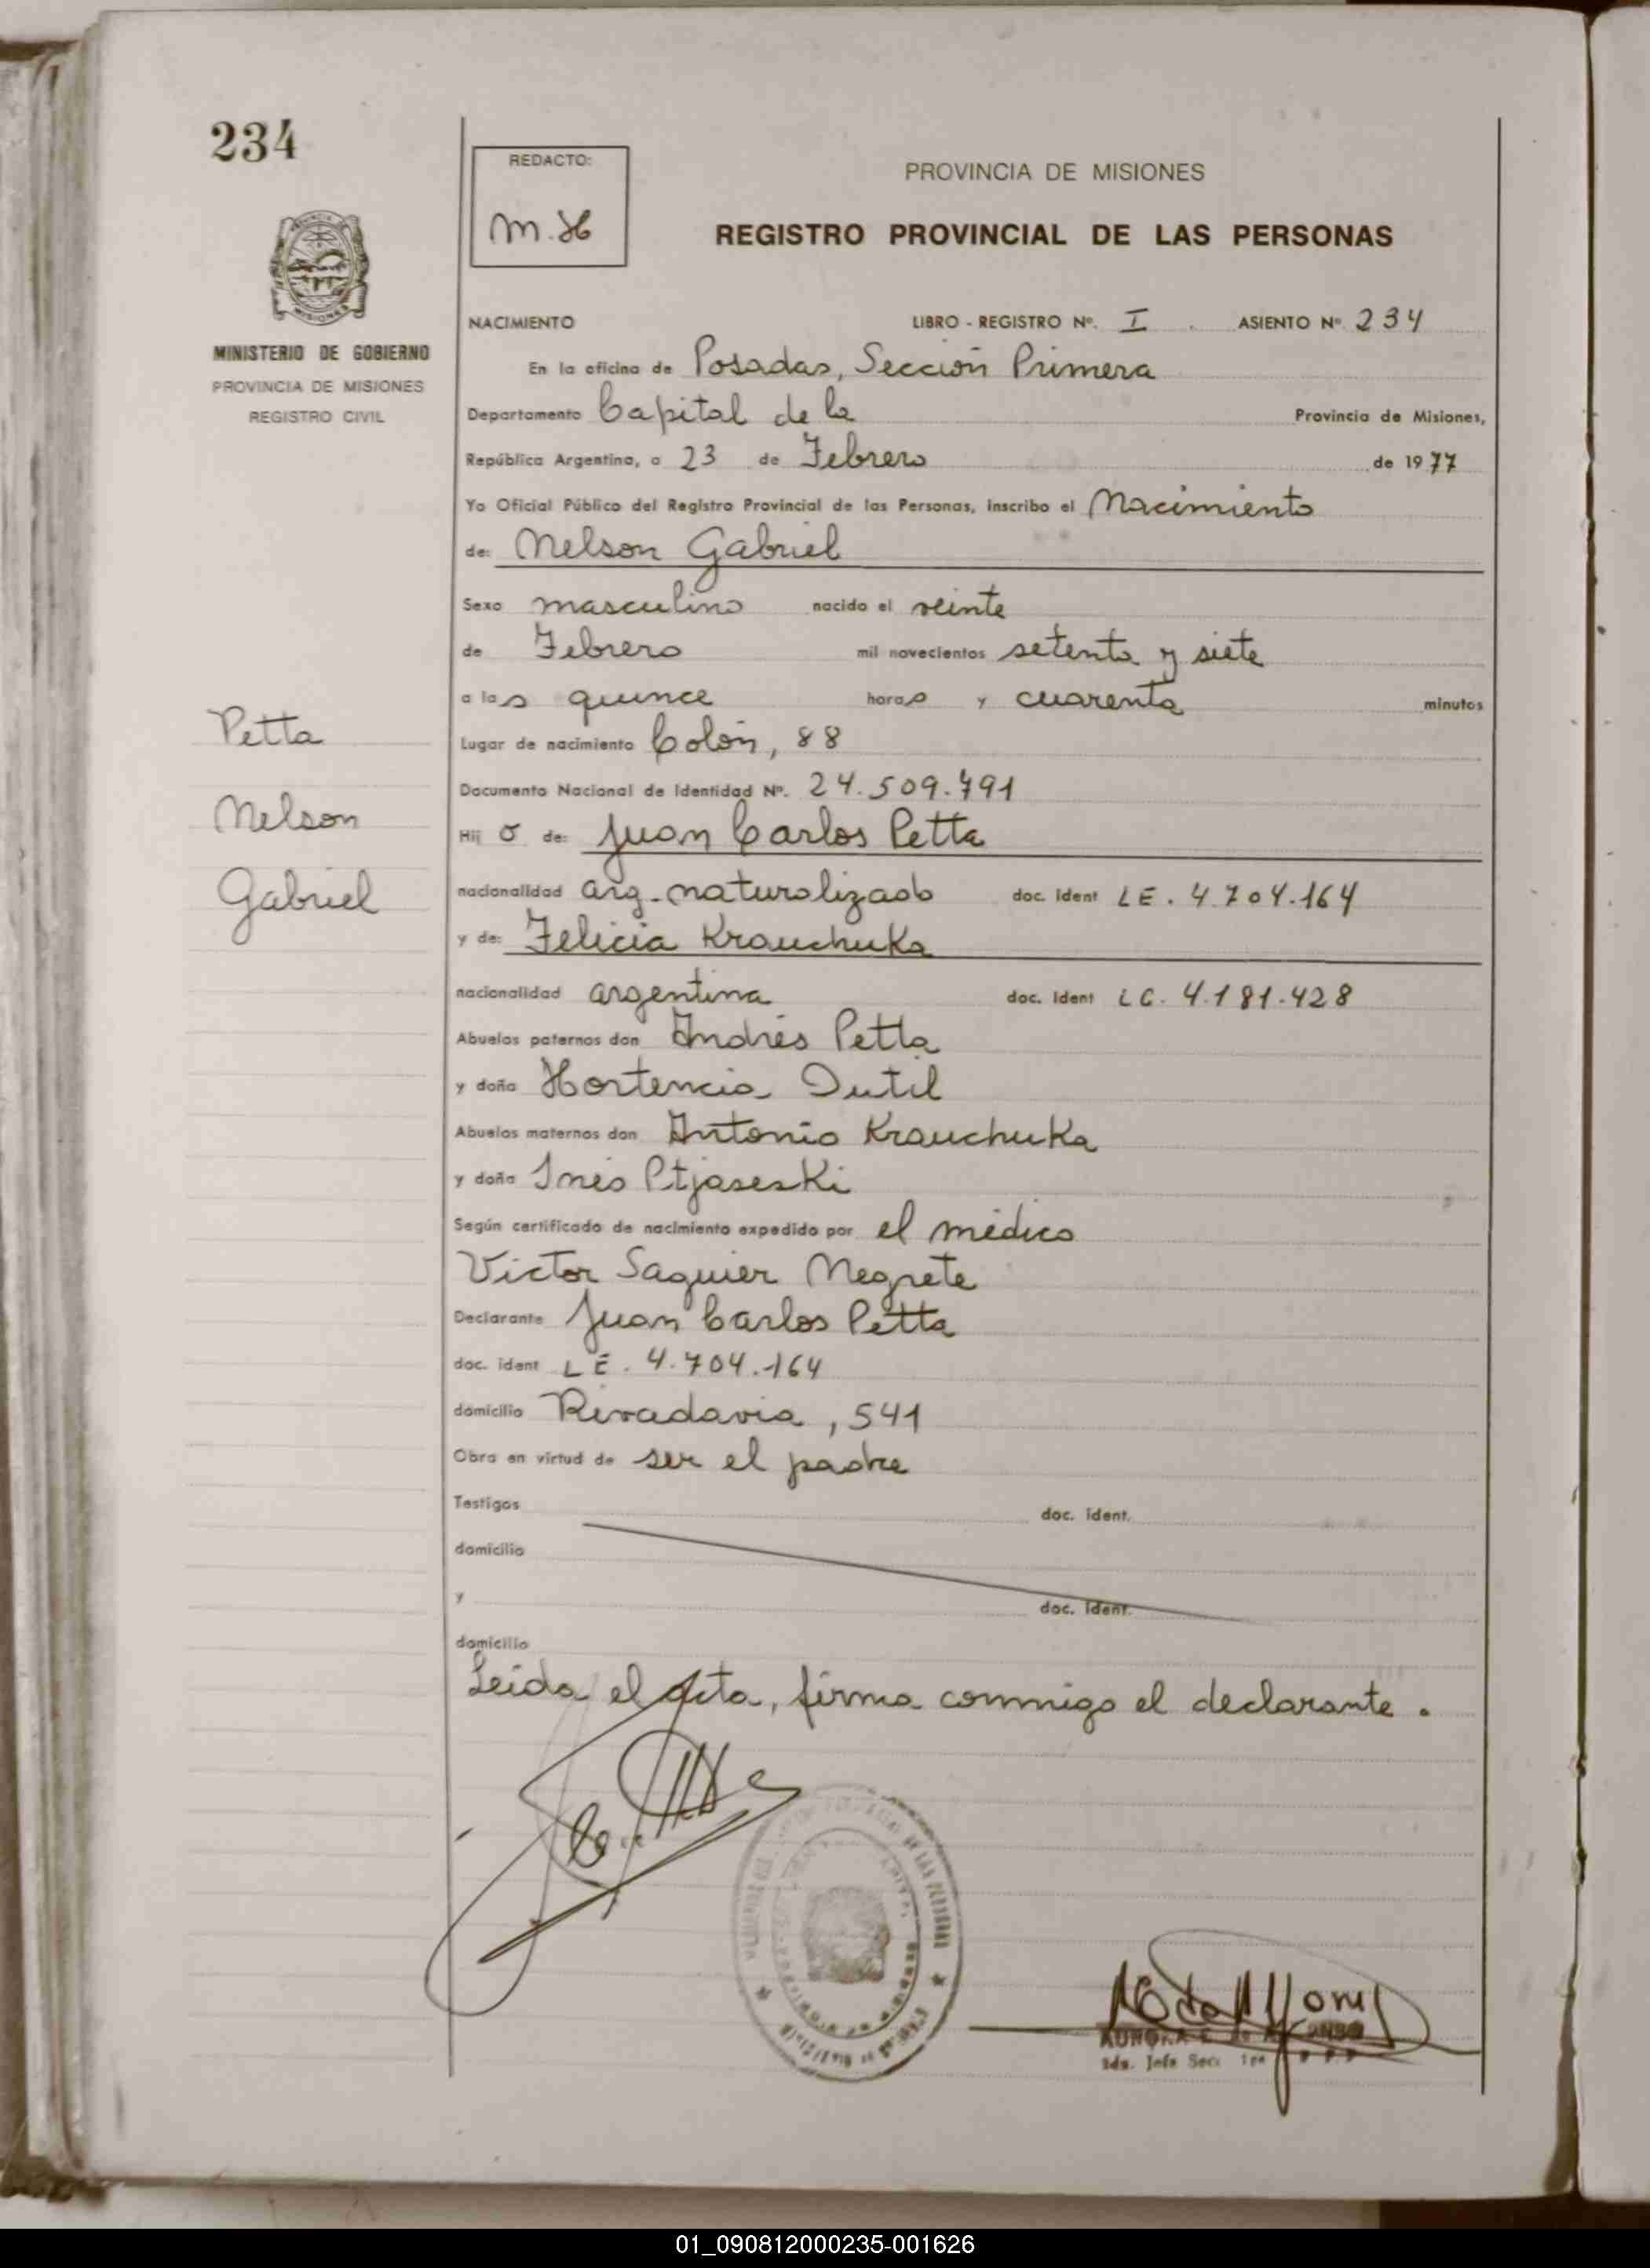 234
REDACTO:
M.H
PROVINCIA DE MISIONES
REGISTRO PROVINCIAL DE LAS PERSONAS
MINISTERIO DE GOBIERNO
PROVINCIA DE MISIONES
REGISTRO CIVIL
NACIMIENTO LIBRO - REGISTRO Nº. I . ASIENTO Nº 234
En la oficina de Posadas, Sección Primera
Departamento Capital de la Provincia de Misiones,
República Argentina, a 23 de Febrero de 1977
Yo Oficial Público del Registro Provincial de las Personas, inscribo el Nacimiento
de: Nelson Gabriel
Sexo masculino nacido el veinte
de Febrero mil novecientos setenta y siete
a las quince horas y cuarenta minutos
Lugar de nacimiento Colón, 88
Documento Nacional de Identidad Nº. 24.509.791
Petta
Nelson
Gabriel
Hij o de: Juan Carlos Petta
nacionalidad arg. naturalizado doc. ident LE. 4.704.164
y de: Felicia Krauchuka
nacionalidad argentina doc. ident LC. 4.181.428
Abuelos paternos don Andrés Petta
y doña Hortencia Dutil
Abuelos maternos don Antonio Krauchuka
y doña Inés Ptjaseski
Según certificado de nacimiento expedido por el médico
Victor Saguier Negrete
Declarante Juan Carlos Petta
doc. ident LE. 4.704.164
domicilio Rivadavia, 541
Obra en virtud de ser el padre
Testigos doc. ident.
domicilio
y doc. ident.
domicilio
Leída el acta, firma conmigo el declarante.
01_090812000235-001626